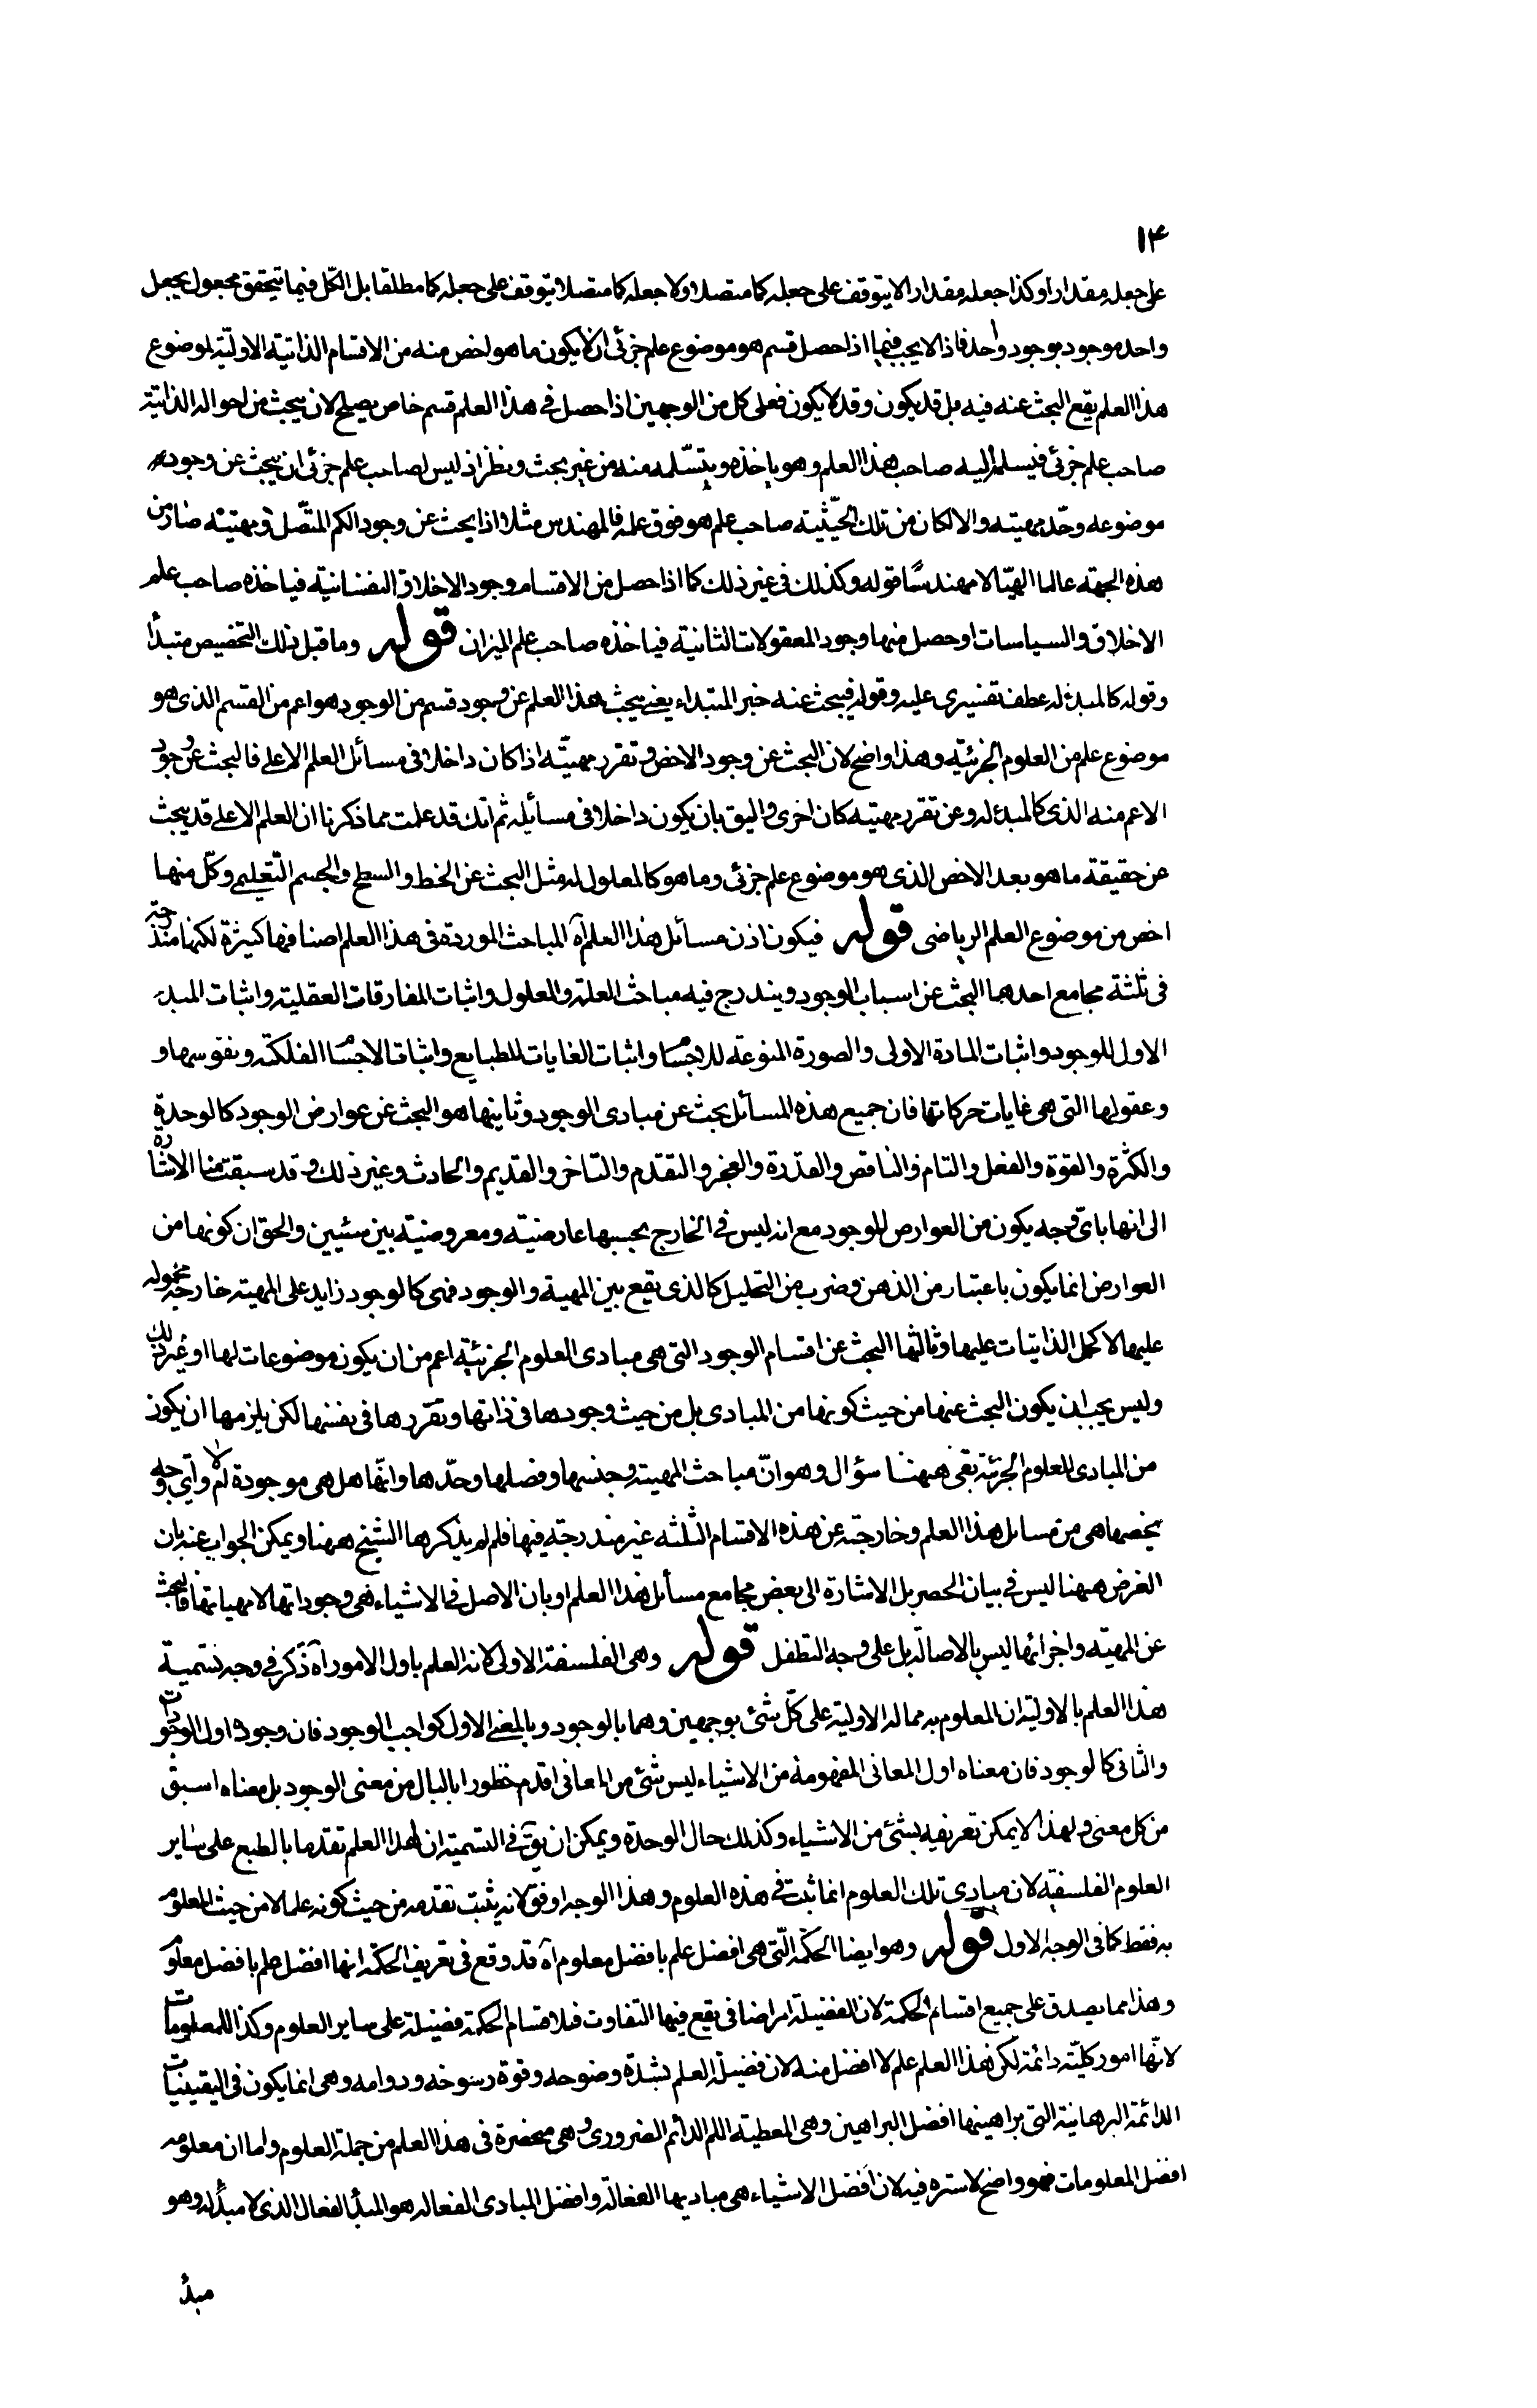 ١٤
على جعله مقدارا وكذا جعله مقدارا لا يتوقف على جعله كما متصلا ولا جعله كما متصلا يتوقف على جعله كما مطلقا بل الكل فيما يتحقق مجعول بجعل
واحد موجود بوجود واحد فاذا لا يجب فيما اذا حصل قسم هو موضوع علم جزئى ان لا يكون ما هو اخص منه من الاقسام الذاتية الاولية لموضوع
هذا العلم يقع البحث عنه فيه بل قد يكون وقد لا يكون فعلى كل من الوجهين اذا حصل فى هذا العلم قسم خاص يصلح لان يبحث من احواله الذاتية
صاحب علم جزئى فيسلم اليه صاحب هذا العلم وهو ياخذه ويتسلمه منه من غير بحث ونظر اذ ليس لصاحب علم جزئى ان يبحث عن وجود
موضوعه وحد مهيته والا لكان من تلك الحيثية صاحب علم هو فوق علمه فالمهندس مثلا اذا بحث عن وجود الكم المتصل ومهيته صار من
هذه الجهة عالما الهيا لا مهندسا قوله وكذلك فى غير ذلك كما اذا حصل من الاقسام وجود الاخلاق النفسانية فياخذه صاحب علم
الاخلاق والسياسات او حصل منها وجود المعقولات الثانية فياخذه صاحب علم الميزان قوله وما قبل ذلك التخصيص مبتدأ
وقوله كالمبدء له عطف تفسيرى عليه وقوله فيبحث عنه خبر المبتداء يعنى يبحث هذا العلم عن وجود قسم من الوجود هو اعم من القسم الذى هو
موضوع علم من العلوم الجزئية وهذا واضح لان البحث عن وجود الاخص وتقرر مهيته اذا كان داخلا فى مسائل العلم الاعلى فالبحث عن وجود
الاعم منه الذى كالمبدء له وعن تقرر مهيته كان احرى واليق بان يكون داخلا فى مسائله ثم انك قد علمت مما ذكرنا ان العلم الاعلى قد يبحث
عن حقيقة ما هو بعد الاخص الذى هو موضوع علم جزئى وما هو كالمعلول له مثل البحث عن الخط والسطح والجسم التعليمى وكل منها
اخص من موضوع العلم الرياضى قوله فيكون اذن مسائل هذا العلم آه المباحث الموردة فى هذا العلم اصنافها كثيرة لكنها مندرجة
فى ثلثة مجامع احدهما البحث عن اسباب الوجود ويندرج فيه مباحث العلة والمعلول واثبات المفارقات العقلية واثبات المبدء
الاول للوجود واثبات المادة الاولى والصورة المنوعة للاجسام واثبات الغايات للطبايع واثبات الاجسام الفلكية ونفوسها و
وعقولها التى هى غايات حركاتها فان جميع هذه المسائل بحث عن مبادى الوجود وثانيها هو البحث عن عوارض الوجود كالوحدة
والكثرة والقوة والفعل والتام والناقص والقدرة والعجز والتقدم والتاخر والقديم والحادث وغير ذلك وقد سبقت منا الاشارة
الى انها باى وجه يكون من العوارض للوجود مع انه ليس فى الخارج بحسبها عارضية ومعروضية بين شيئين والحق ان كونها من
العوارض انما يكون باعتبار من الذهن وضرب من التحليل كالذى يقع بين المهية والوجود فهى كالوجود زايد على المهية خارجة محموله
عليها لا كحمل الذاتيات عليها وثالثها البحث عن اقسام الوجود التى هى مبادى العلوم الجزئية اعم من ان يكون موضوعات لها او غير ذلك
وليس يجب ان يكون البحث عنها من حيث كونها من المبادى بل من حيث وجودها فى ذاتها وتقررها فى نفسها لكن يلزمها ان يكون
من المبادى للعلوم الجزئية بقى هيهنا سؤال وهو ان مباحث المهية وجنسها وفصلها وحدها وانها هل هى موجودة ام لا وأى وجه
يخصها هى من مسائل هذا العلم وخارجة عن هذه الاقسام الثلثه غير مندرجة فيها فلم لم يذكرها الشيخ ههنا ويمكن الجواب عنه بان
الغرض هيهنا ليس فى بيان الحصر بل الاشارة الى بعض مجامع مسائل هذا العلم او بان الاصل فى الاشياء هى وجوداتها لا مهياتها فالبحث
عن المهية واجزائها ليس بالاصالة بل على وجه التطفل قوله وهى الفلسفة الاولى لانه العلم باول الامور آه ذكر فى وجه تسمية
هذا العلم بالاولية ان المعلوم به مما له الاولية على كل شئ بوجهين وهما بالوجود وبالمعنى الاول كواجب الوجود فان وجوده اول الوجودات
والثانى كالوجود فان معناه اول المعانى المفهومة من الاشياء ليس شئ من المعانى اقدم خطورا بالبال من معنى الوجود بل معناه اسبق
من كل معنى ولهذا لا يمكن تعريفه بشئ من الاشياء وكذلك حال الوحدة ويمكن ان يق فى التسمية ان لهذا العلم تقدما بالطبع على ساير
العلوم الفلسفية لان مبادى تلك العلوم انما ثبت فى هذه العلوم وهذا الوجه اوفق لانه يثبت تقدمه من حيث كونه علما لا من حيث المعلوم
به فقط كما فى الوجه الاول قوله وهو ايضا الحكمة التى هى افضل علم بافضل معلوم آه قد وقع فى تعريف الحكمة انها افضل علم بافضل معلوم
وهذا مما يصدق على جميع اقسام الحكمة لان الفضيلة امر اضافى يقع فيها التفاوت فلاقسام الحكمة فضيلة على ساير العلوم وكذا للمعلومات
لانها امور كلية دائمة لكن هذا العلم علم لا افضل منه لان فضيلة العلم بشدة وضوحه وقوة رسوخه ودوامه وهى انما يكون فى اليقينيات
الدائمة البرهانية التى براهينها افضل البراهين وهى المعطية اللم الدائم الضرورى وهى منحصرة فى هذا العلم من جملة العلوم واما ان معلومه
افضل المعلومات فهو واضح لا ستره فيه لان افضل الاشياء هى مباديها الفعالة وافضل المبادى الفعاله هو المبدأ الفعال الذى لا مبدأ له وهو
مبدأ